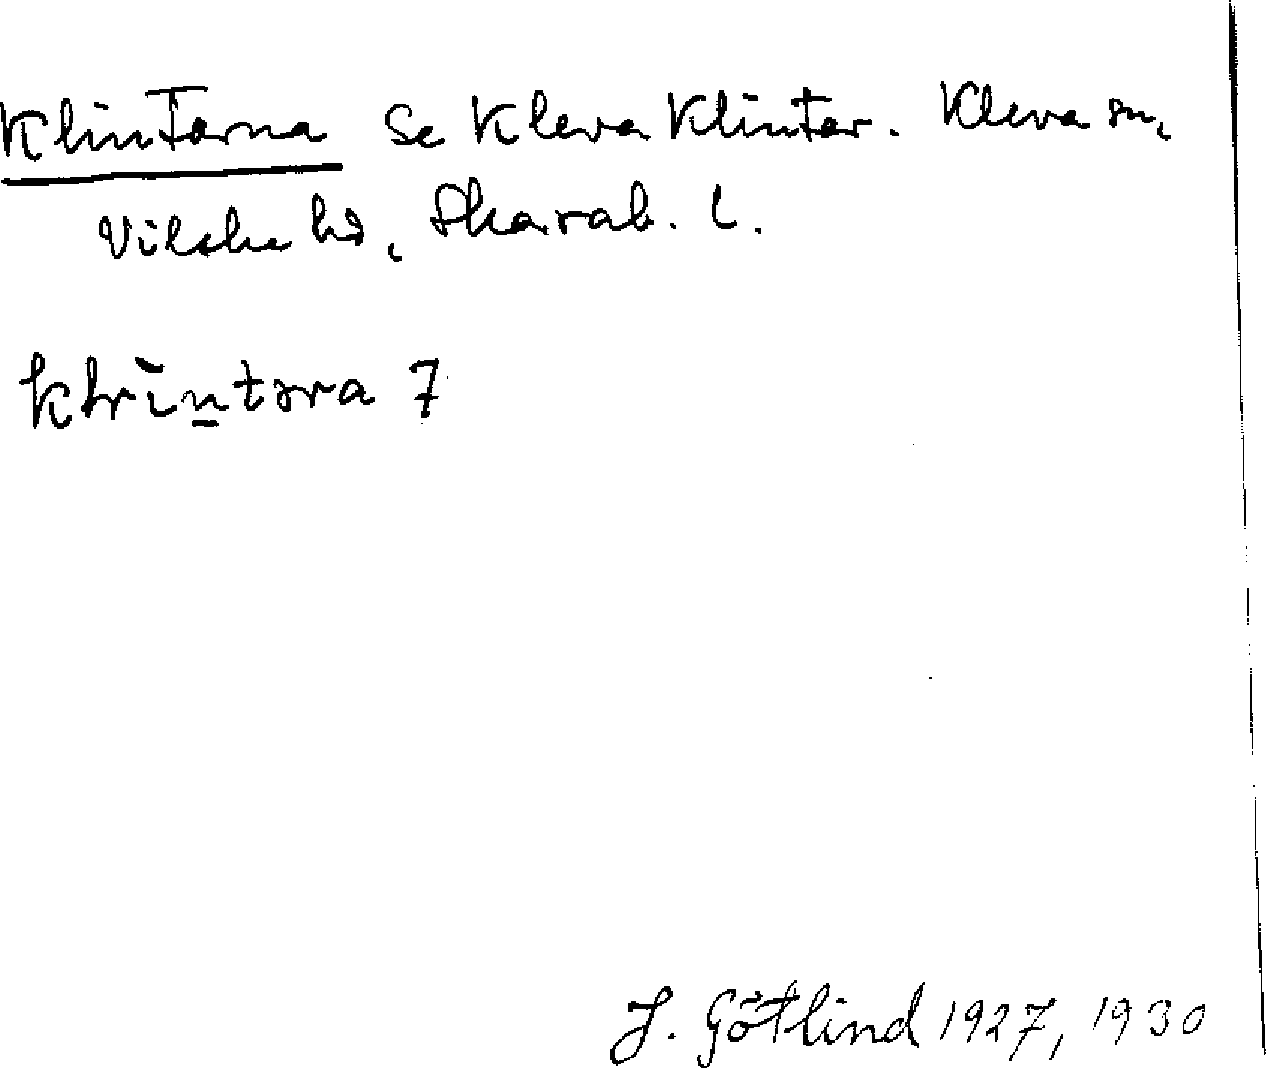 Klintarna Se Kleva Klintar. Kleva sn,
Vilske hd, Skarab. l.
klintəra 7
J. Götlind 1927, 1930